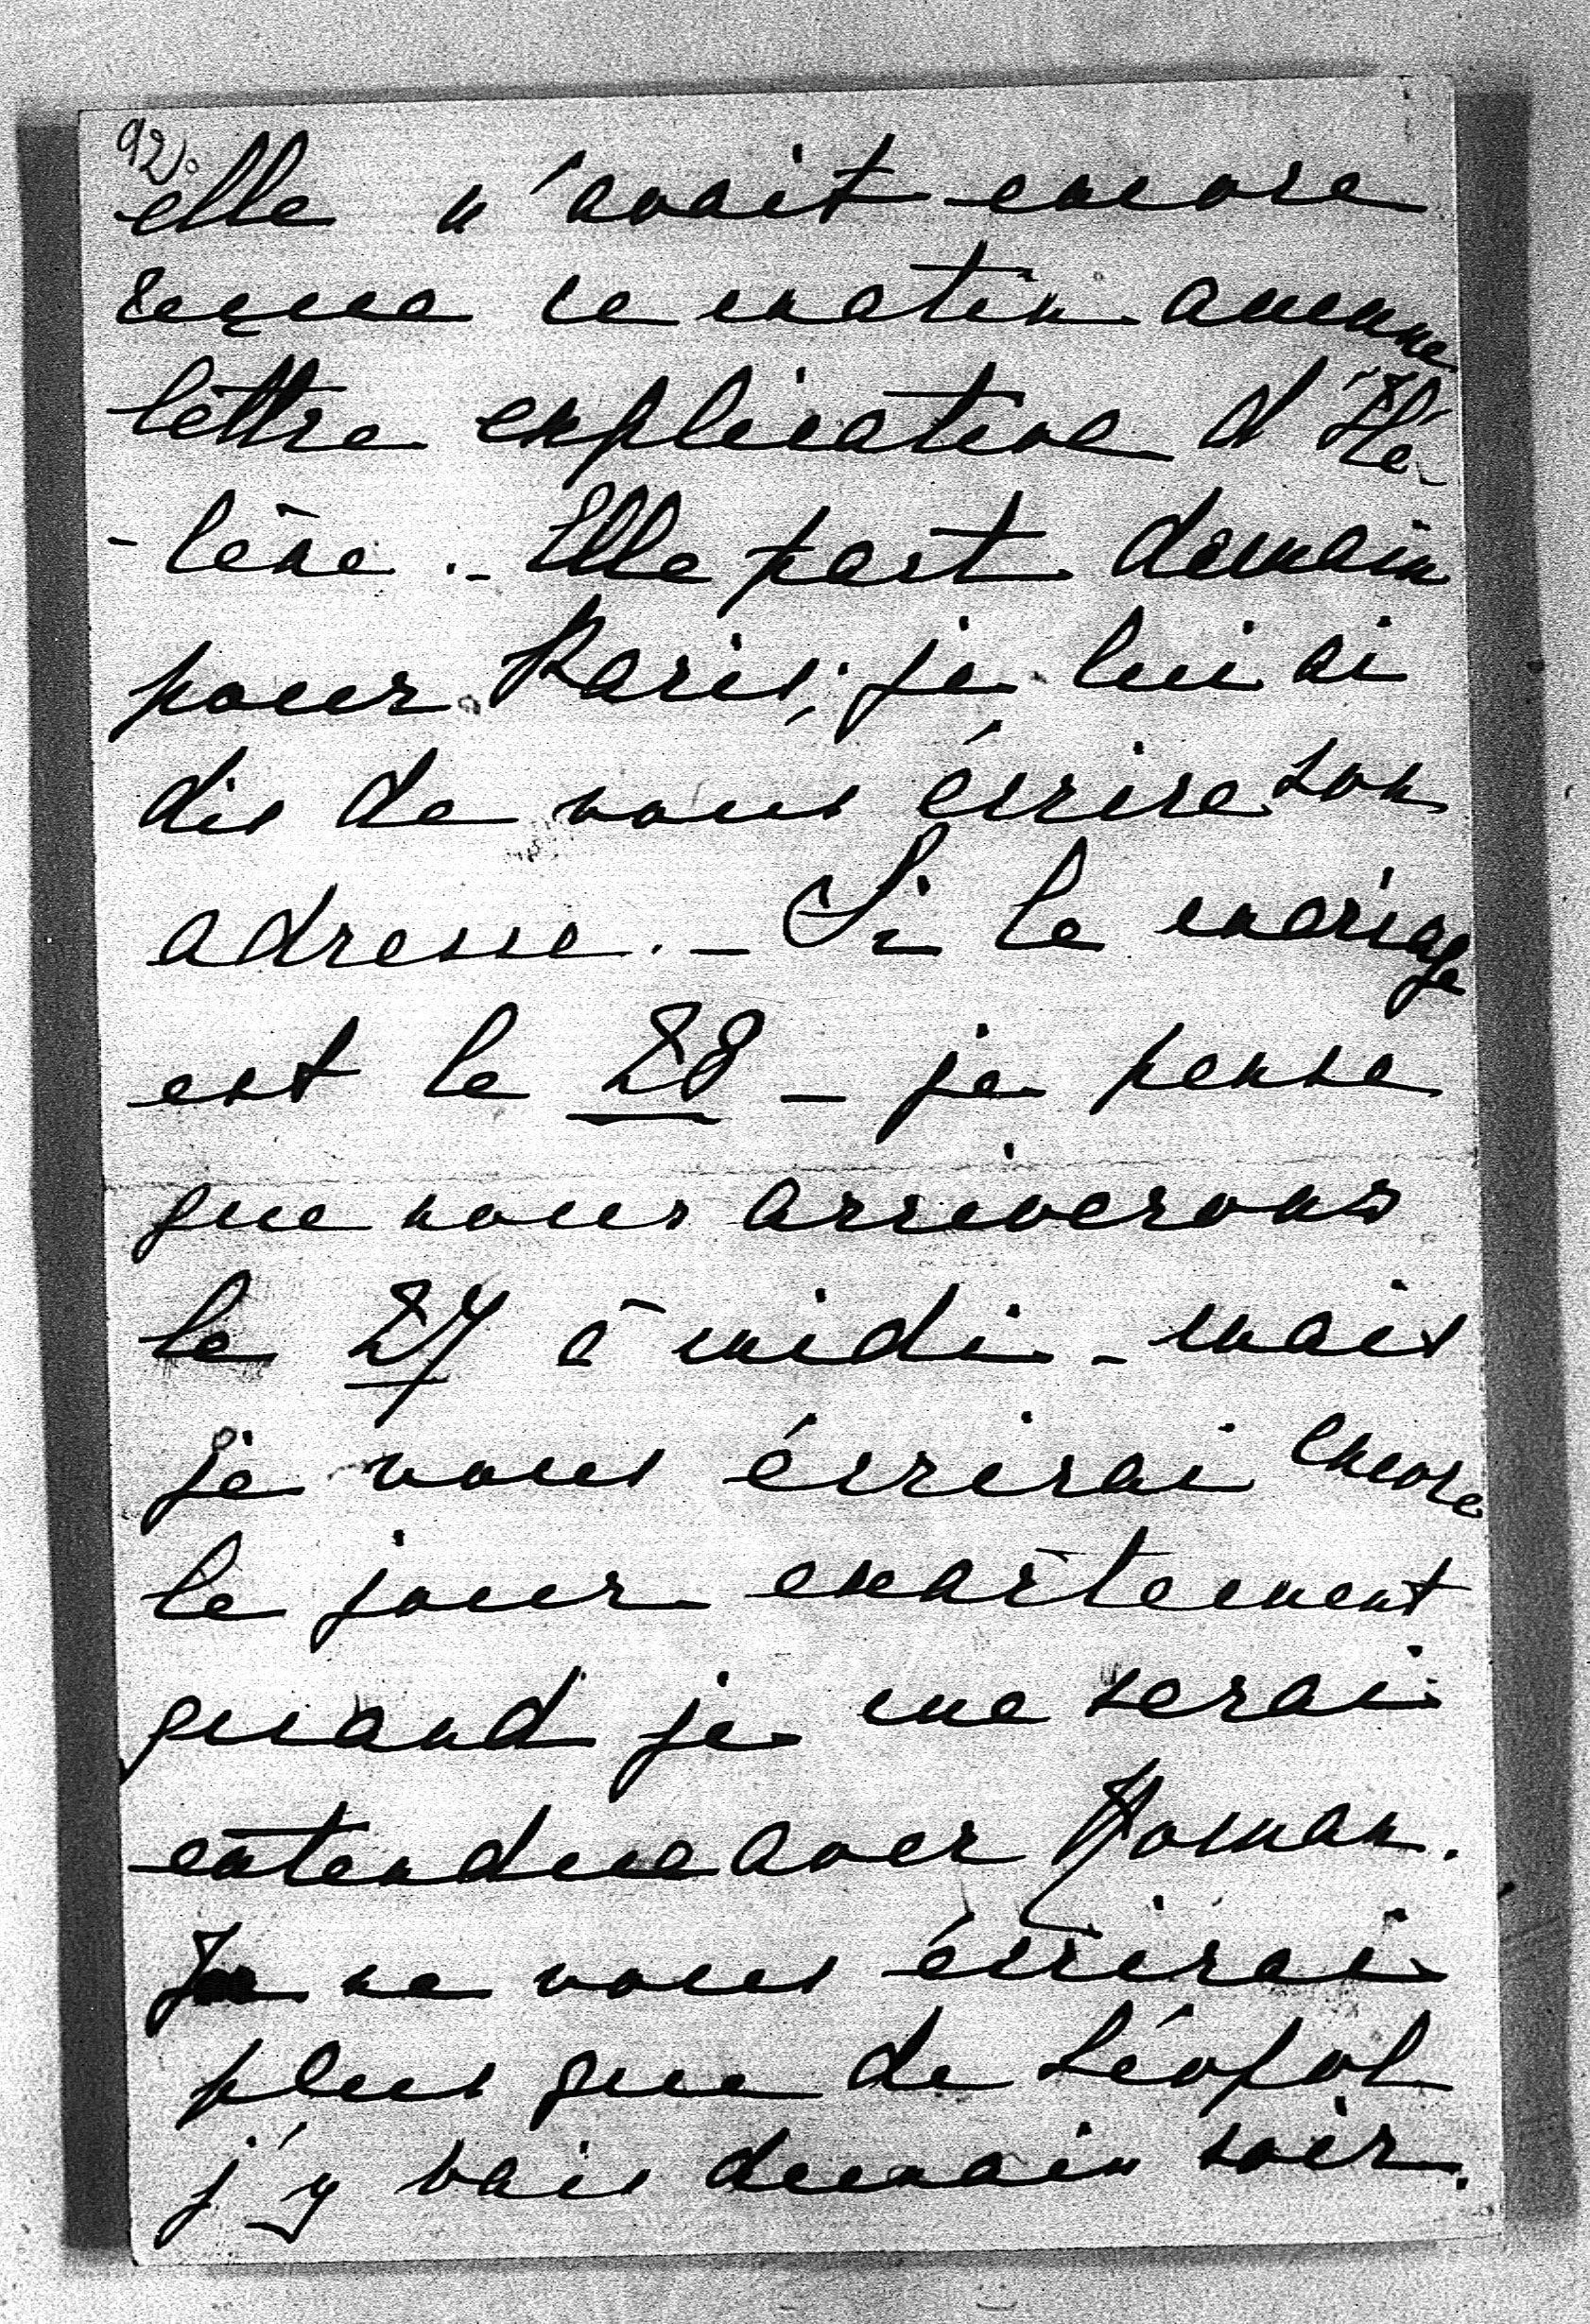 92.
elle n'avait encore
reçue ce matin aucune
lettre explicative d'Hé-
-lène. - Elle part demain
pour Paris; je lui ai
dis de vous écrire son
adresse. - Si le mariage
est le 28 - je pense
que nous arriverons
le 27 à midi - mais
je vous écrirai encore
le jour exactement
quand je me serai
entendue avec Roman.
Je ne vous écrirai
plus que de Léopol
j'y vais demain soir.